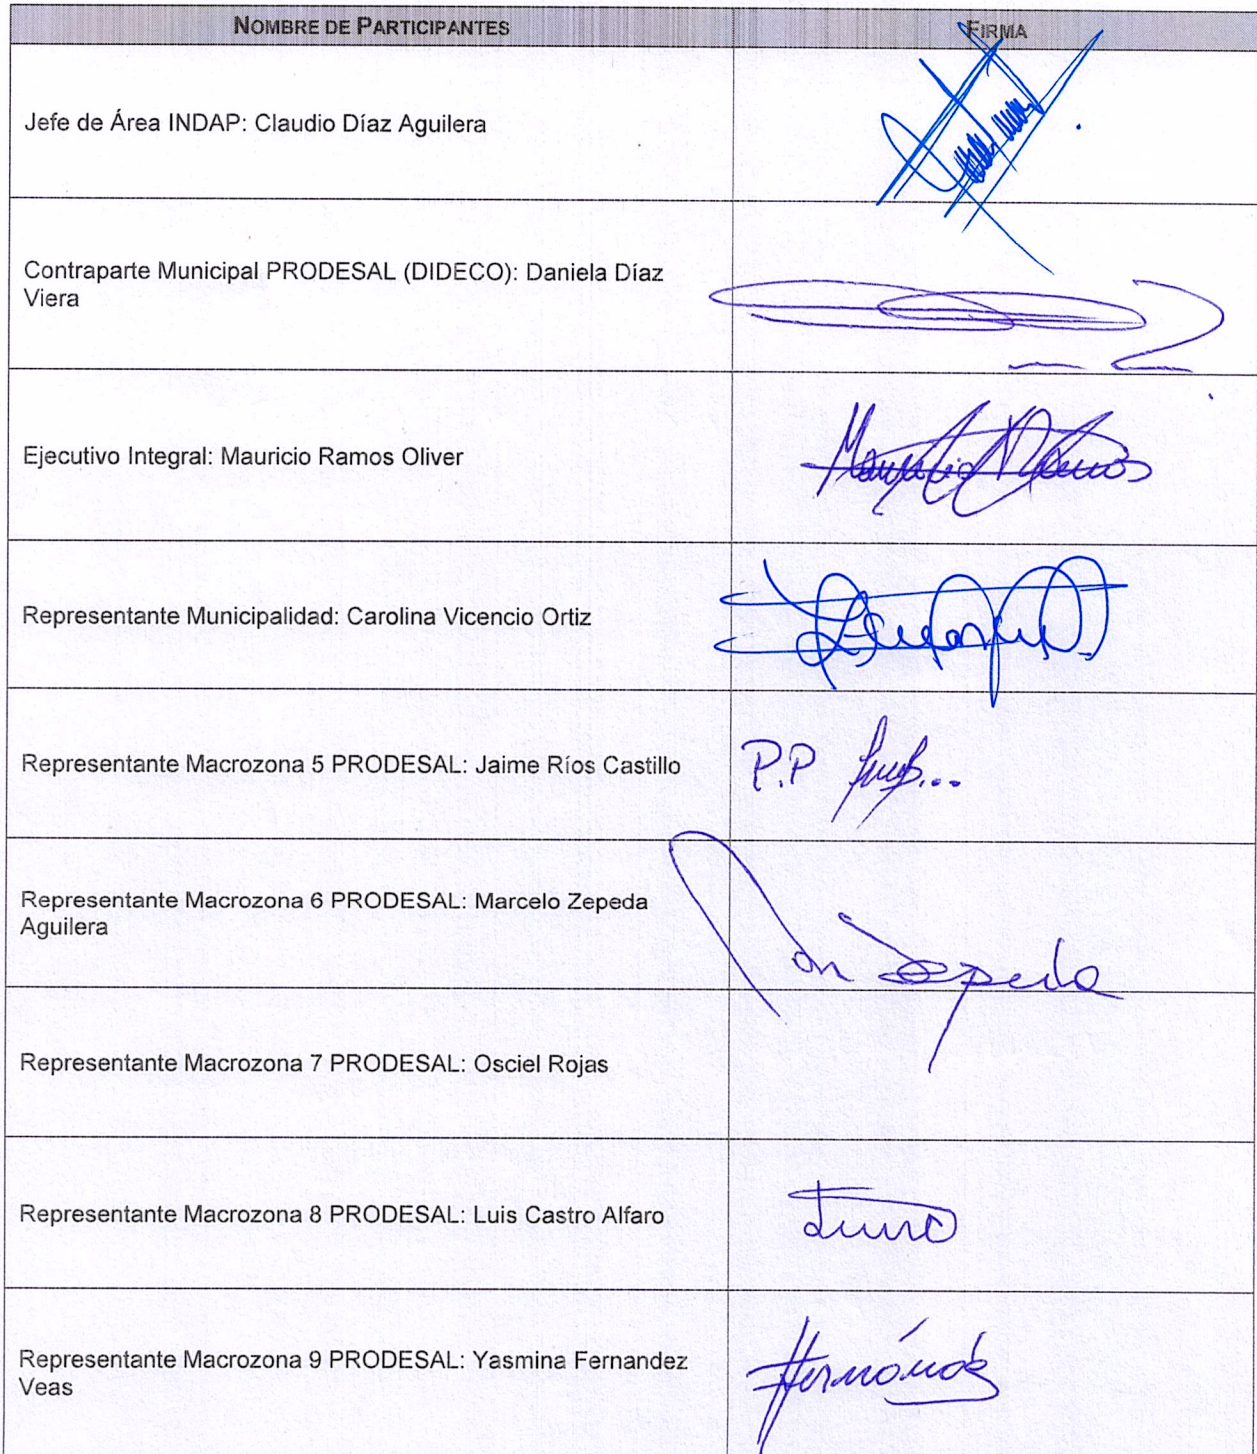 NOMBRE DE PARTICIPANTES
FIRMA
Jefe de Área INDAP: Claudio Díaz Aguilera
Contraparte Municipal PRODESAL (DIDECO): Daniela Díaz
Viera
Ejecutivo Integral: Mauricio Ramos Oliver
Mauricio Ramos
Representante Municipalidad: Carolina Vicencio Ortiz
Representante Macrozona 5 PRODESAL: Jaime Ríos Castillo
P.P
Representante Macrozona 6 PRODESAL: Marcelo Zepeda
Aguilera
Zepeda
Representante Macrozona 7 PRODESAL: Osciel Rojas
Representante Macrozona 8 PRODESAL: Luis Castro Alfaro
Representante Macrozona 9 PRODESAL: Yasmina Fernandez
Veas